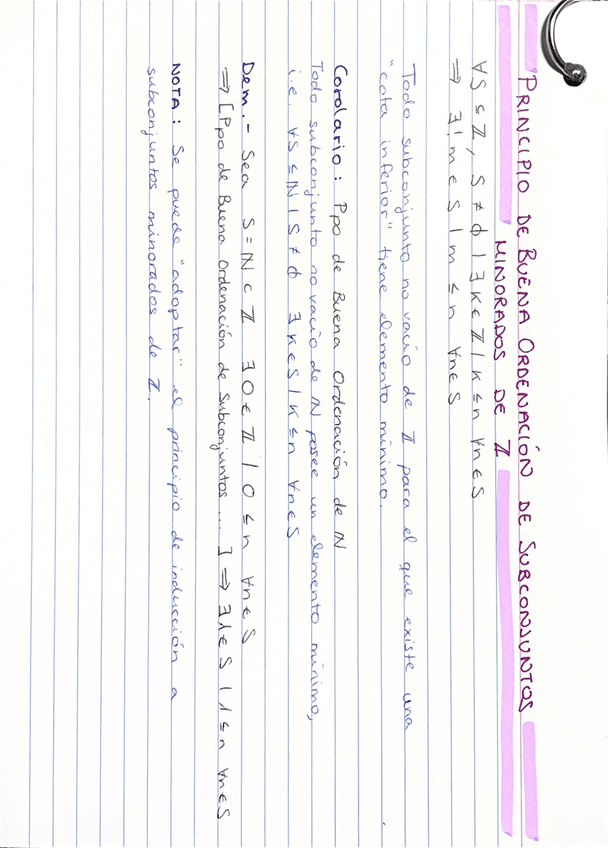 PRINCIPIO DE BUENA ORDENACIÓN DE SUBCONJUNTOS
MINORADOS DE ℤ
∀S ⊆ ℤ, S ≠ ϕ | ∃ K ∈ ℤ / K ≤ n ∀n ∈ S
⇒ ∃! m ∈ S | m ≤ n ∀n ∈ S
Todo subconjunto no vacío de ℤ para el que existe una
"cota inferior" tiene elemento mínimo.
Corolario: Ppo de Buena Ordenación de ℕ
Todo subconjunto no vacío de ℕ posee un elemento mínimo,
i.e. ∀S ⊆ ℕ | S ≠ ϕ ∃ K ∈ S / K ≤ n ∀n ∈ S
Dem.- Sea S = ℕ ⊂ ℤ ∃ 0 ∈ ℤ / 0 ≤ n ∀n ∈ S
⇒ [Ppo de Buena Ordenación de Subconjuntos ... ] ⇒ ∃ 1 ∈ S | 1 ≤ n ∀n ∈ S
NOTA: Se puede "adoptar" el principio de inducción a
subconjuntos minorados de ℤ.